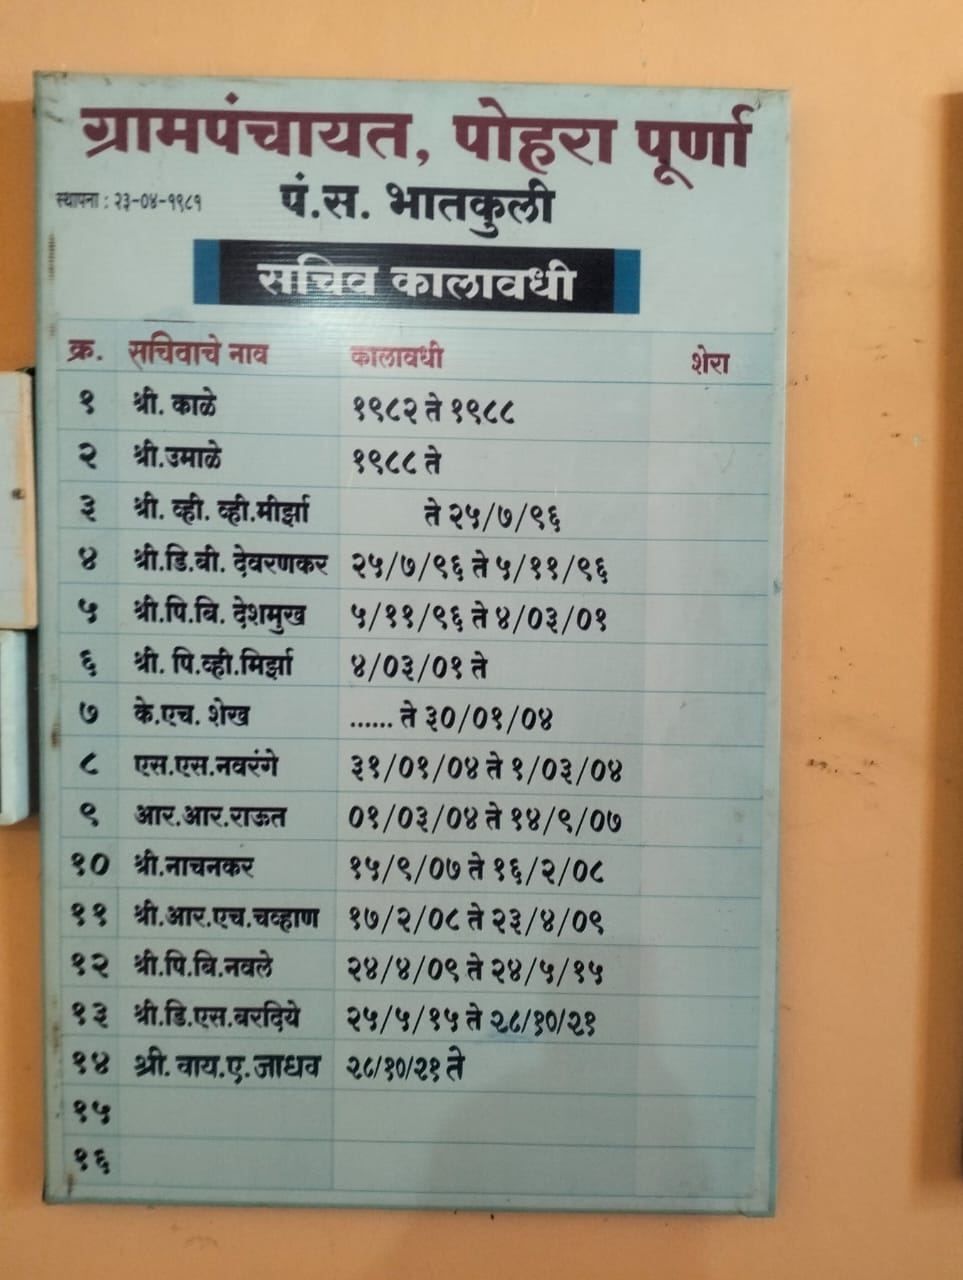 ग्रामपंचायत, पोहरा पूर्णा
स्थापना : २३-०४-१९८१ पं.स. भातकुली
सचिव कालावधी
क्र. सचिवाचे नाव कालावधी शेरा
१ श्री. काळे १९८२ ते १९८८
२ श्री.उमाळे १९८८ ते
३ श्री. व्ही. व्ही.मीर्झा ते २५/७/९६
४ श्री.डि.बी. देवरणकर २५/७/९६ ते ५/११/९६
५ श्री.पि.बि. देशमुख ५/११/९६ ते ४/०३/०१
६ श्री. पि.व्ही.मिर्झा ४/०३/०१ ते
७ के.एच. शेख ...... ते ३०/०१/०४
८ एस.एस.नवरंगे ३१/०१/०४ ते १/०३/०४
९ आर.आर.राऊत ०१/०३/०४ ते १४/९/०७
१० श्री.नाचनकर १५/९/०७ ते १६/२/०८
११ श्री.आर.एच.चव्हाण १७/२/०८ ते २३/४/०९
१२ श्री.पि.बि.नवले २४/४/०९ ते २४/५/१५
१३ श्री.डि.एस.बरदिये २५/५/१५ ते २८/१०/२१
१४ श्री. वाय.ए.जाधव २८/१०/२१ ते
१५
१६